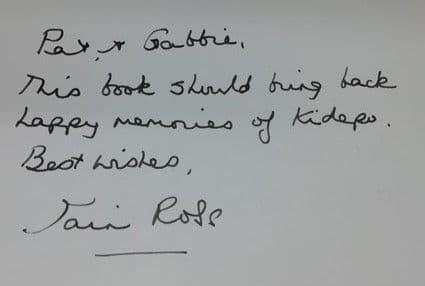 Pat & Gabbie,
This book should bring back
happy memories of Kidepo.
Best wishes,
Iain Ross